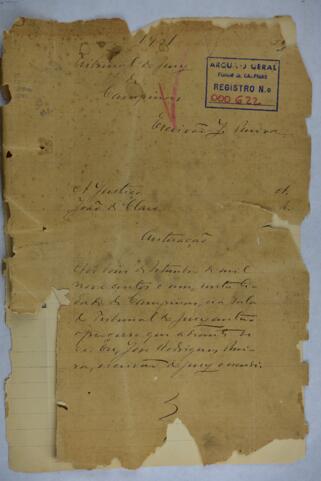 1901
Tribunal do jury
de
Campinas
ARQUIVO GERAL
FORUM DE CAMPINAS
REGISTRO N.o
000622
Escrivão J. Ruiva
A Justiça A.
João de Claro R.
Autuação
Aos dois de Setembro de mil
novecentos e um, nesta Ci-
dade de Campinas, na Sala
do Tribunal do jury autuo
o processo que adiante se
vê. Eu, José Rodrigues Rui-
va, escrivão do jury o escrevi.